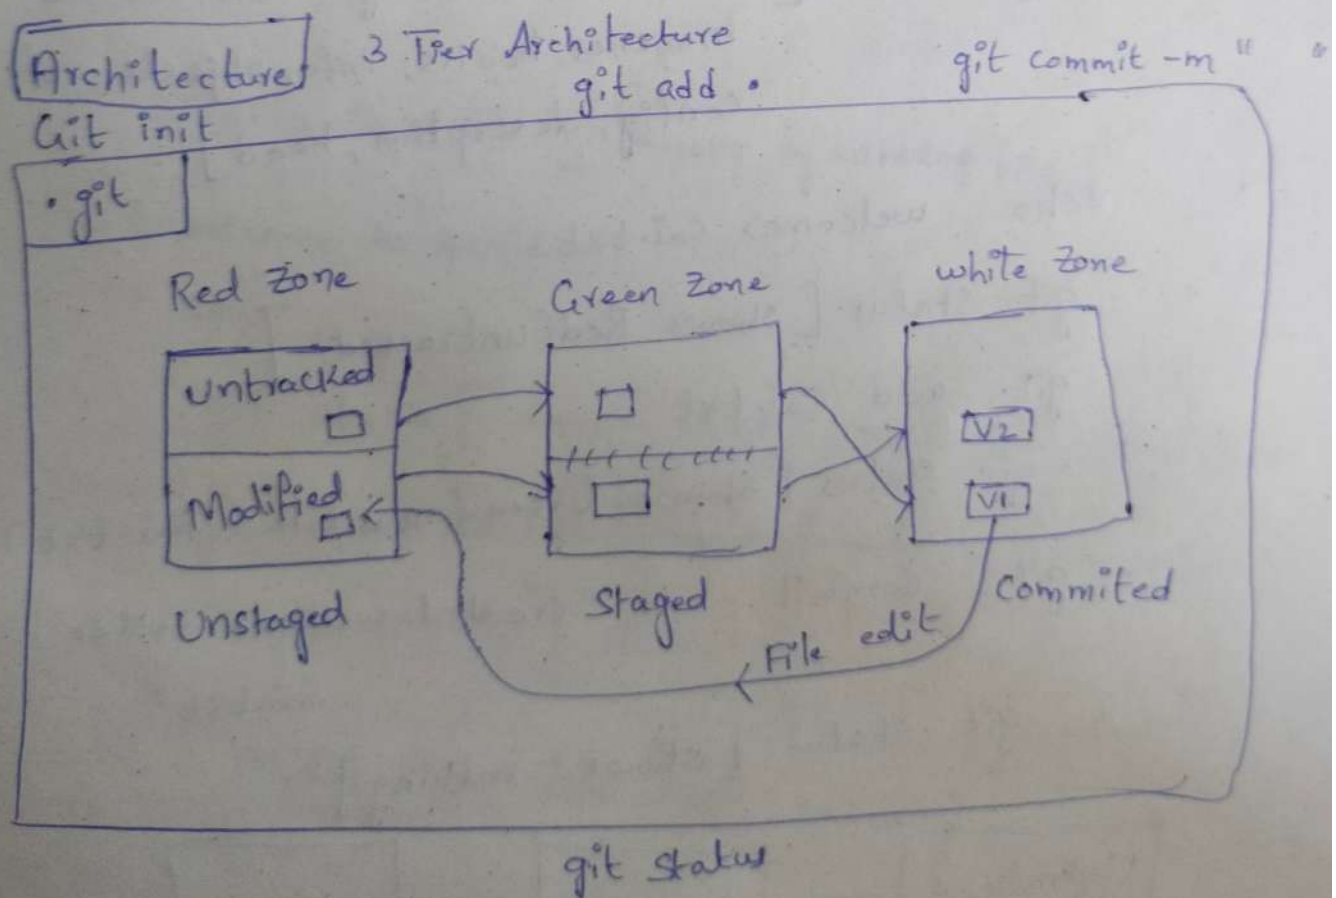 Architecture
3 Tier Architecture
git add .
git commit -m " "
Git init
.git
Red Zone
Green Zone
white Zone
untracked
Modified
V2
V1
Unstaged
Staged
Commited
File edit
git status